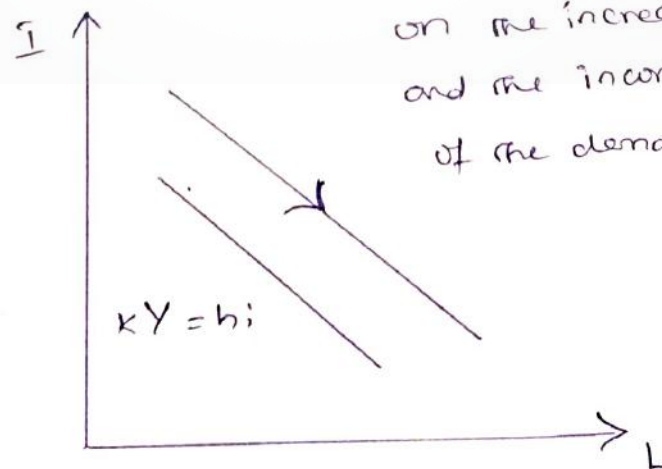 I
on the increa
and the incor
of the dema
KY = hi
L